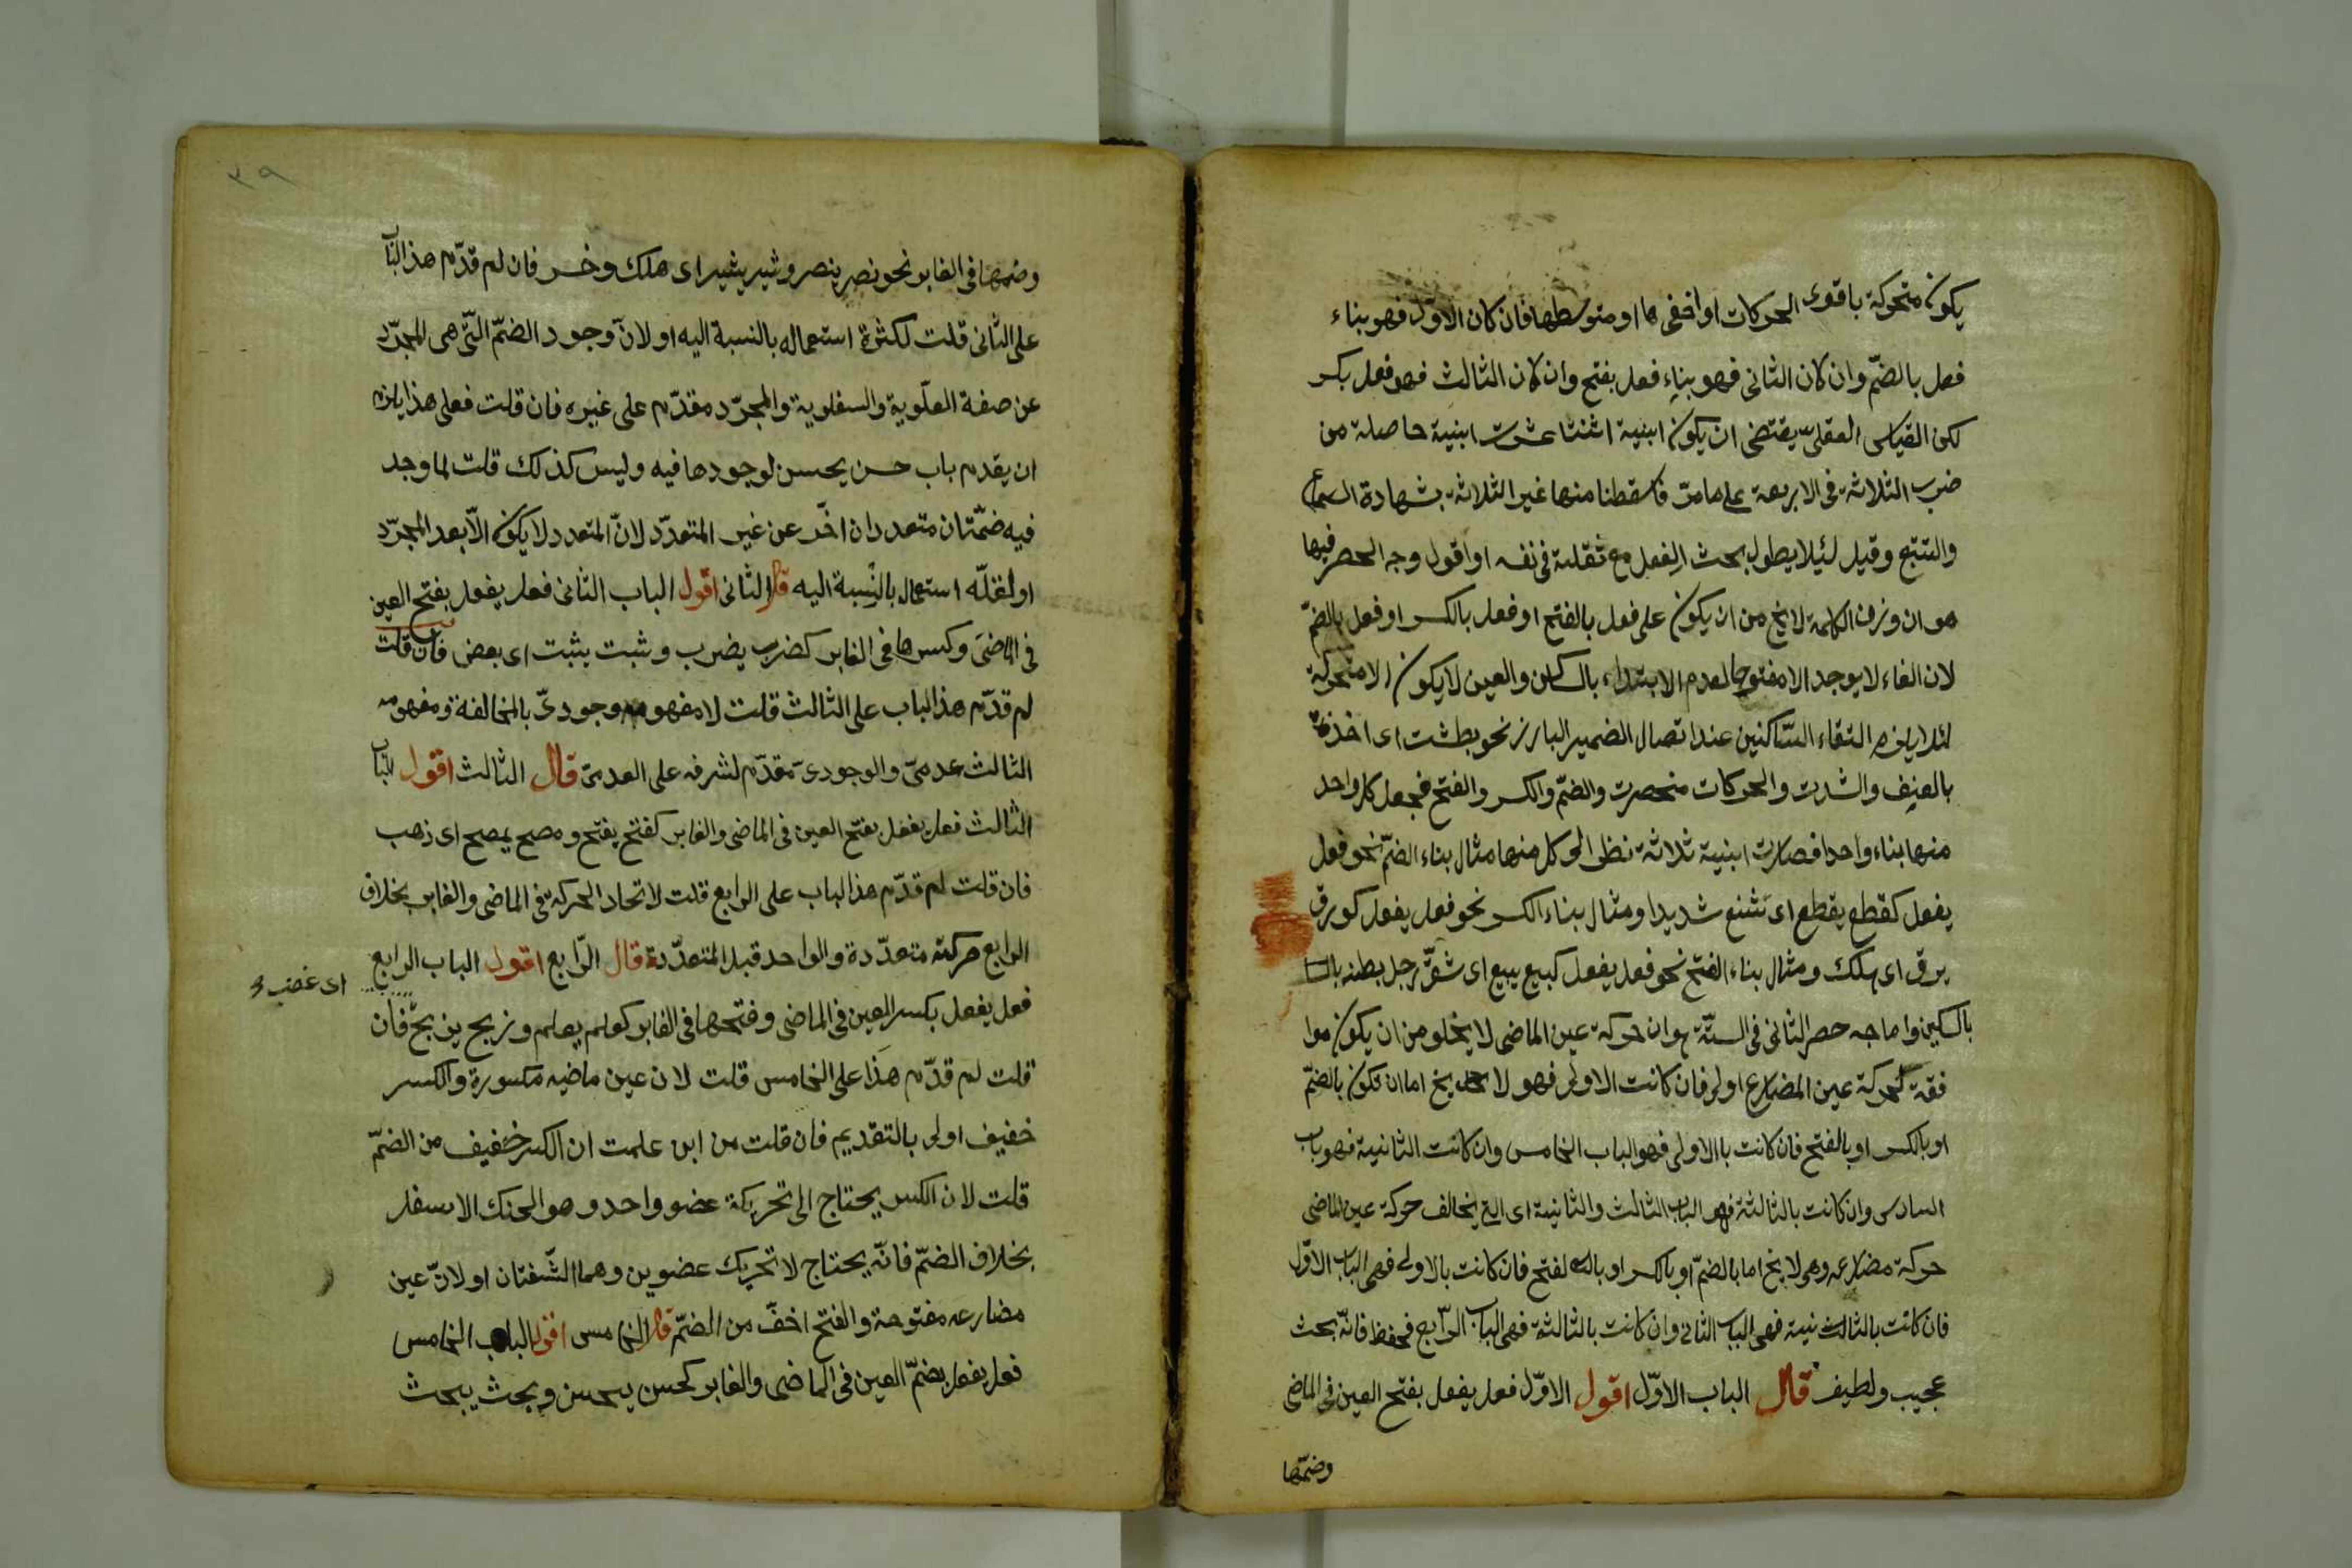 يكون متحركة باقوى الحركات او اخفى ها او متوسطها فان كان الاول فهو بناء
فعل بالضمّ وان كان الثانى فهو بناء فعل بفتح وان كان الثالث فهو فعل بكسر
لكن القياس العقلىّ يقتضى ان يكون ابنية اثنتا عشرت ابنية حاصلة من
ضرب الثلاثة فى الاربعة على ما مرّ فاسقطنا منها غير الثلاثة بشهادة السماع
والتتبع وقيل لئيلا يطول بحث الفعل مع ثقلته فى نفسه او اقول وجه الحصر فيها
هو ان وزن الكلمة لا يخ من ان يكون على فعل بالفتح او فعل بالكسر او فعل بالضمّ
لان الفاء لا يوجد الا مفتوحا لعدم الابتداء بالساكن والعين لا يكون الا متحركة
لئلا يلزم التقاء السّاكنين عند اتصال الضمير البارز نحو بطشت اى اخذته
بالعنيف والشدت والحركات منحصرت والضمّ والكسر والفتح فجعل كل واحد
منها بناء واحدا فصارت ابنية ثلاثة نظر الى كل منها مثال بناء الضمّ نحو فعل
يفعل كقطع يقطع اى تشنع شديدا ومثال بناء الكسر نحو فعل يفعل كورق
يرق اى يهلك ومثال بناء الفتح نحو فعل يفعل كبيع يبيع اى شقّ رجل بطنه
بالسكين واما جه حصر الثانى فى الستّة هو ان حركة عين الماضى لا يخلو من ان يكون موا
فقة لحركة عين المضارع اولى فان كانت الاولى فهو لا يخ اما ان تكون بالضمّ
او بالكسر او بالفتح فان كانت باالاولى فهو الباب الخامس وان كانت الثانية فهو باب
السادس وان كانت بالثالثة فهو الباب الثالث والثانية اى التى يخالف حركة عين الماضى
حركة مضارعه وهى لا يخ اما بالضمّ او بالكسر او بالفتح فان كانت بالاولى فهى الباب الاوّل
فان كانت بالثانية فهى الباب الثانى وان كانت بالثالثة فهى الباب الرّابع فحفظ فانّه بحث
عجيب ولطيف قال الباب الاوّل اقول الاوّل فعل يفعل بفتح العين فى الماضى
وضمّها
٣٩
وضمها فى الغابر نحو نصر ينصر وثبر يثبر اى هلك وخسر فان لم قدّم هذا الباب
على الثانى قلت لكثرة استعماله بالنسبة اليه او لانّ وجود الضمّ التّى هى المجرّد
عن صفة العلّوية والسفلوية والمجرّد مقدّم على غيره فان قلت فعلى هذا يلزم
ان يقدم باب حسن يحسن لوجودها فيه وليس كذلك قلت لما وجد
فيه ضمّتان متعددان اخّر عن غير المتعدّد لانّ المتعدد لا يكون الّا بعد المجرّد
او لقلّه استعمال بالنّسبة اليه قال الثانى اقول الباب الثانى فعل يفعل بفتح العين
فى الماضى وكسرها فى الغابر كضرب يضرب وثبت يثبت اى بعض فان قلت
لم قدّم هذا الباب على الثالث قلت لا مفهومه وجودىّ بالمخالفة ومفهومه
الثالث عدمىّ والوجودىّ مقدّم لشرفه على العدمىّ قال الثالث اقول الباب
الثالث فعل يفعل بفتح العين فى الماضى والغابر كفتح يفتح ومصح يمصح اى ذهب
فان قلت لم قدّم هذا الباب على الرابع قلت لاتحاد الحركة فى الماضى والغابر بخلاف
الرابع حركته متعدّدة والواحد قبل المتعدّدة قال الرّابع اقول الباب الرابع
فعل يفعل بكسر العين فى الماضى وفتحها فى الغابر كعلم يعلم فان
اى غضب
قلت لم قدّم هذا على الخامس قلت لان عين ماضيه مكسورة والكسر
خفيف اولى بالتقديم فان قلت من اين علمت ان الكسر خفيف من الضمّ
قلت لان الكسر يحتاج الى تحريكة عضو واحد وهو الحنك الاسفل
بخلاف الضمّ فانّه يحتاج لا تحريك عضوين وهما الشّفتان او لانّ عين
مضارعه مفتوحة والفتح اخفّ من الضمّ قال الخامس اقول الباب الخامس
فعل يفعل بضمّ العين فى الماضى والغابر كحسن يحسن وبحث يبحث